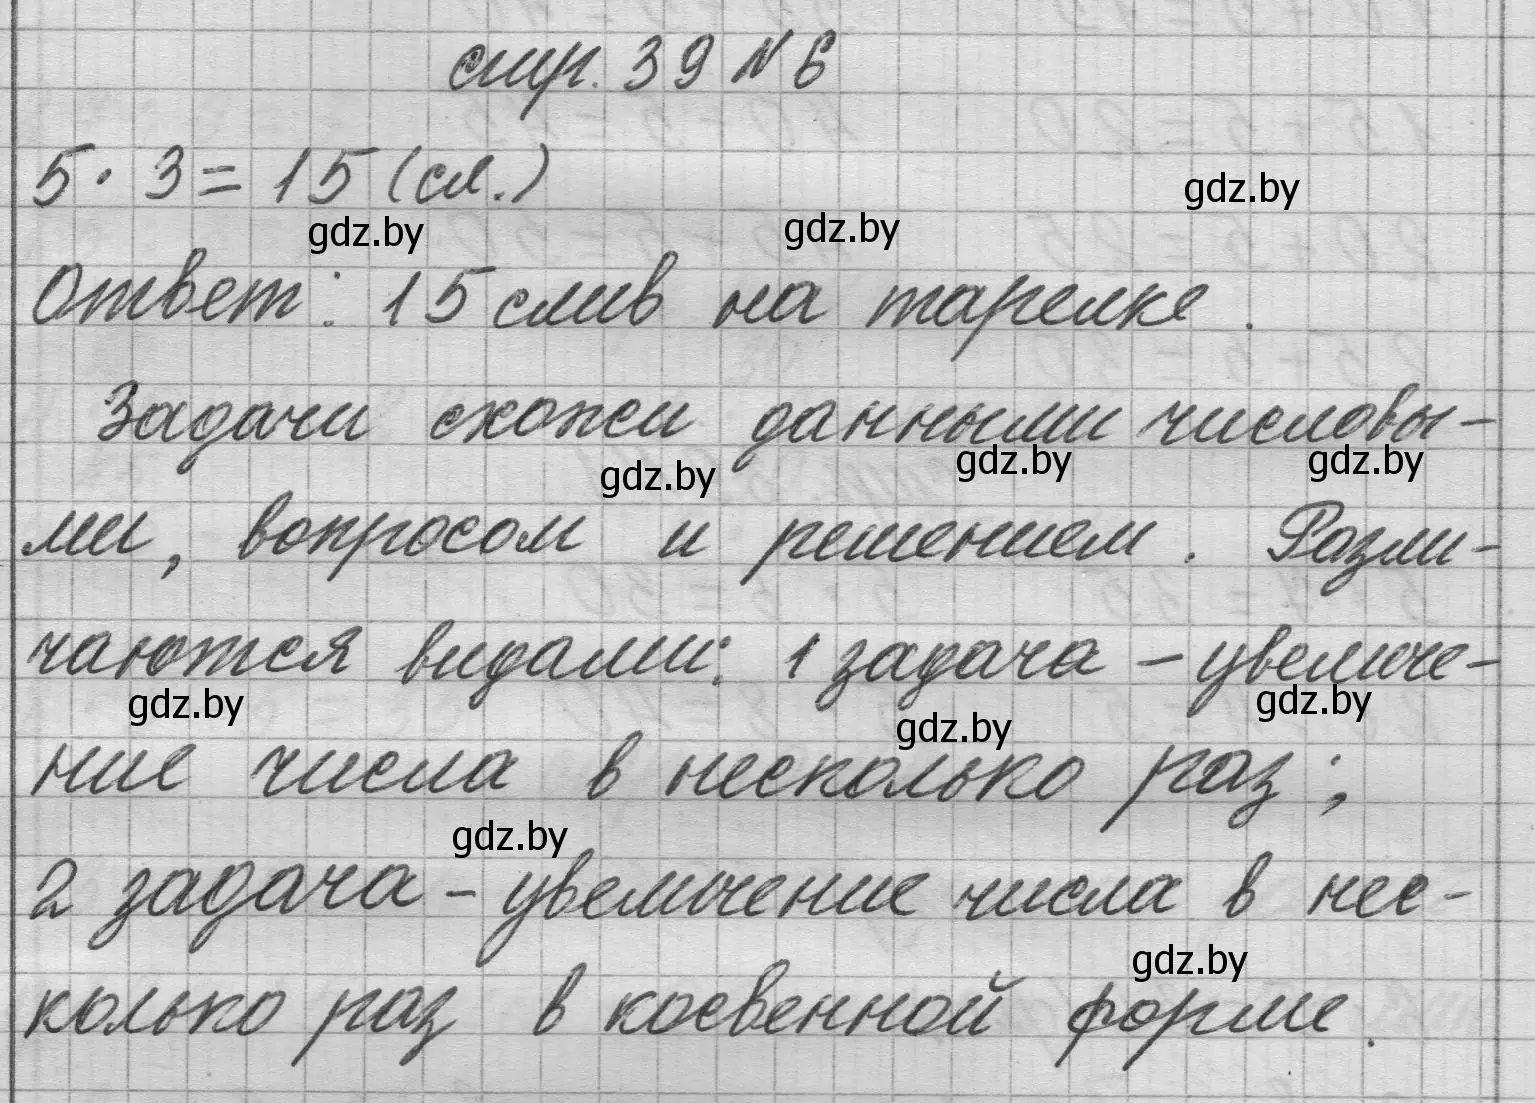 стр. 39 № 6
5 · 3 = 15 (сл.)
gdz.by
gdz.by
gdz.by
Ответ: 15 слив на тарелке.
Задачи схожи данными числовы-
gdz.by
gdz.by
gdz.by
ми, вопросом и решением. Разли-
чаются видами: 1 задача – увеличе-
gdz.by
gdz.by
gdz.by
ние числа в несколько раз;
gdz.by
2 задача – увеличение числа в нес-
gdz.by
колько раз в косвенной форме.